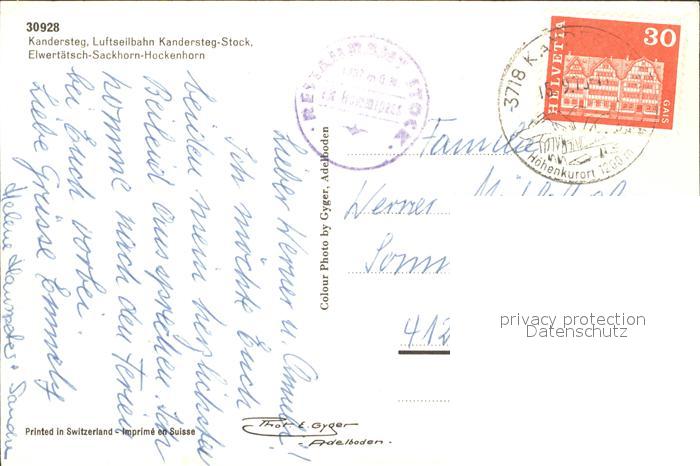 30928
Kandersteg, Luftseilbahn Kandersteg-Stock,
Elwertätsch-Sackhorn-Hockenhorn
RESTAURANT STOCK
HELVETIA
30
GAIS
3718 K
Höhenkurort 1200 m
Lieber Werner u. Anneli!
Ich möchte Euch
beiden mein herzlichstes
Beileid aussprechen. Ich
komme nach den Ferien
bei Euch vorbei.
Liebe Grüsse Emmely
Helene Hanspeter + Sandra
Colour Photo by Gyger, Adelboden
Familie
Werner
Sonn
412
privacy protection
Datenschutz
Phot E. Gyger
- Adelboden -
Printed in Switzerland - Imprimé en Suisse